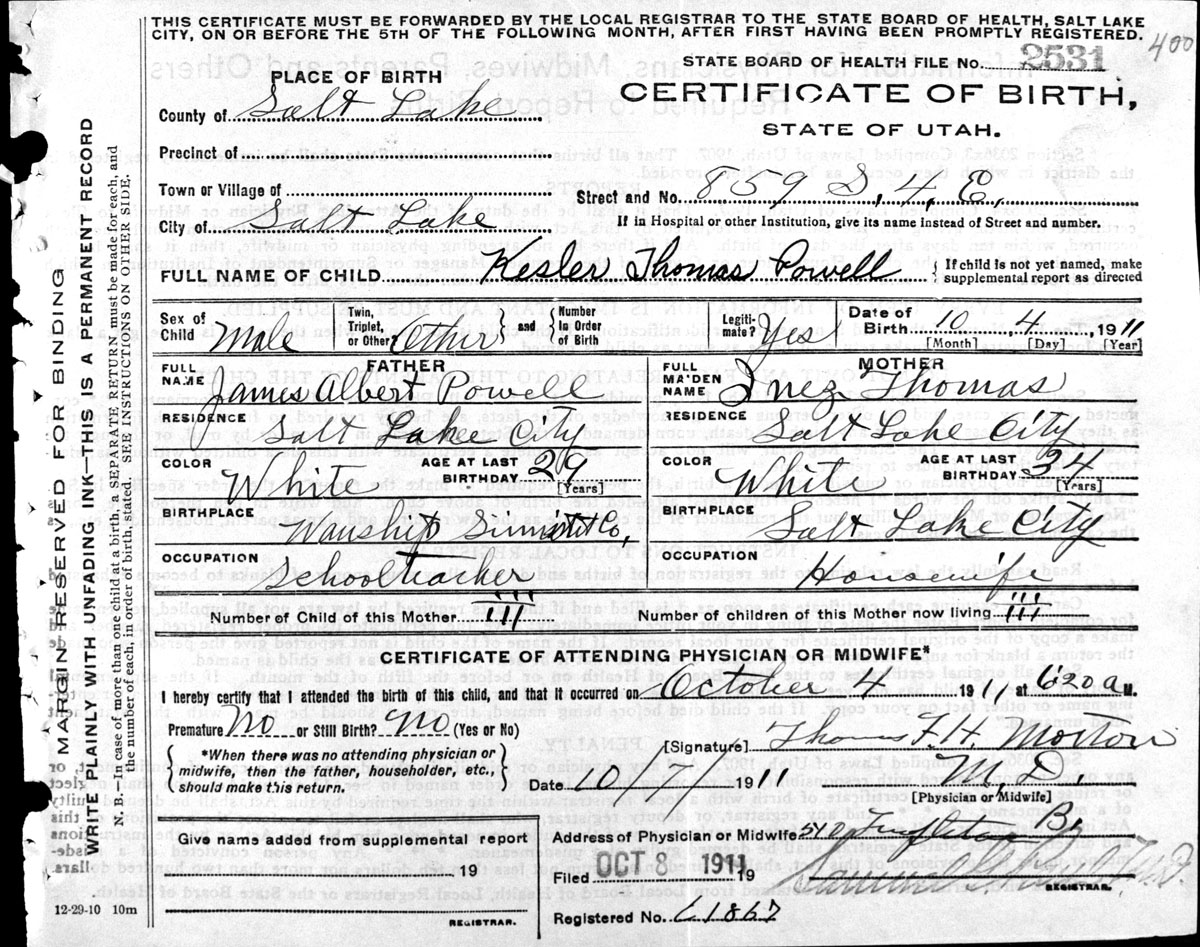 THIS CERTIFICATE MUST BE FORWARDED BY THE LOCAL REGISTRAR TO THE STATE BOARD OF HEALTH, SALT LAKE
CITY, ON OR BEFORE THE 5TH OF THE FOLLOWING MONTH, AFTER FIRST HAVING BEEN PROMPTLY REGISTERED.
400
STATE BOARD OF HEALTH FILE No. 2531
PLACE OF BIRTH
CERTIFICATE OF BIRTH,
STATE OF UTAH.
County of Salt Lake
Precinct of
Town or Village of
Street and No. 859 S, 4, E,
City of Salt Lake
If in Hospital or other Institution, give its name instead of Street and number.
FULL NAME OF CHILD Kesler Thomas Powell
{ If child is not yet named, make
supplemental report as directed
Sex of Child Male
Twin, Triplet, or Other? Other
and { Number in Order of Birth
Legitimate? Yes
Date of Birth 10 4 1911
[Month] [Day] [Year]
FATHER
FULL NAME James Albert Powell
RESIDENCE Salt Lake City
COLOR White
AGE AT LAST BIRTHDAY 29
[Years]
BIRTHPLACE Wanship Summit Co,
OCCUPATION Schoolteacher
MOTHER
FULL MAIDEN NAME Inez Thomas
RESIDENCE Salt Lake City
COLOR White
AGE AT LAST BIRTHDAY 34
[Years]
BIRTHPLACE Salt Lake City
OCCUPATION Housewife
Number of Child of this Mother III
Number of children of this Mother now living III
CERTIFICATE OF ATTENDING PHYSICIAN OR MIDWIFE*
I hereby certify that I attended the birth of this child, and that it occurred on October 4 1911 at 6:20 a M.
Premature No or Still Birth? No (Yes or No)
{ *When there was no attending physician or
midwife, then the father, householder, etc.,
should make this return. }
[Signature] Thomas F. H. Morton
M. D.
Date 10/7/ 1911
[Physician or Midwife]
Give name added from supplemental report
19
REGISTRAR.
Address of Physician or Midwife
Filed OCT 8 1911 19
REGISTRAR.
Registered No. L1867
12-29-10 10m
MARGIN RESERVED FOR BINDING
WRITE PLAINLY WITH UNFADING INK—THIS IS A PERMANENT RECORD
N. B. In case of more than one child at a birth, a SEPARATE RETURN must be made for each, and
the number of each, in order of birth, stated. SEE INSTRUCTIONS ON OTHER SIDE.